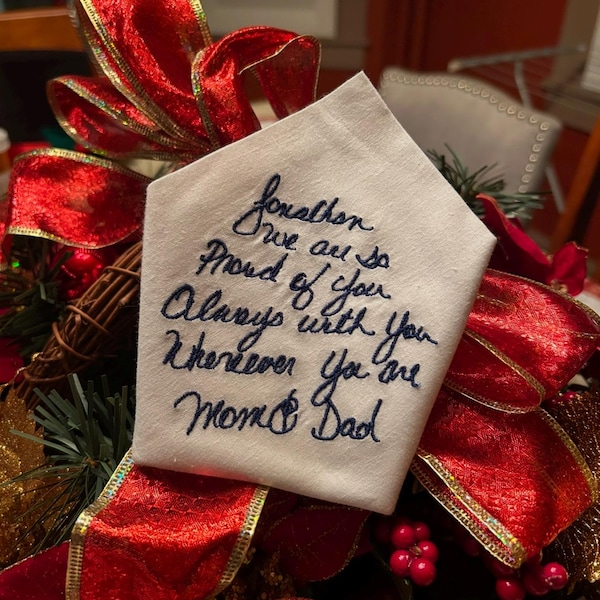 Jonathan
We are so
Proud of You
Always with You
Whereever You are
Mom & Dad